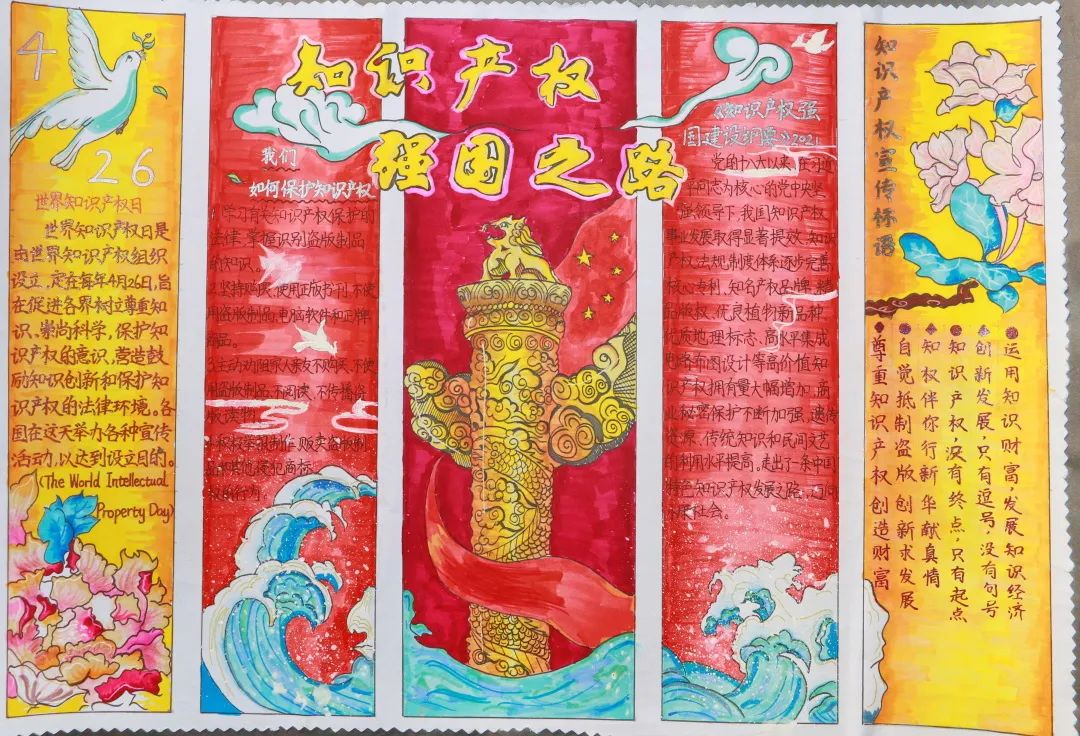 知识产权
强国之路
4
26
世界知识产权日
世界知识产权日是
由世界知识产权组织
设立,定在每年4月26日,旨
在促进各界树立尊重知
识、崇尚科学,保护知
识产权的意识,营造鼓
励知识创新和保护知
识产权的法律环境。各
国在这天举办各种宣传
活动,以达到设立目的。
(The World Intellectual
Property Day)
我们
如何保护知识产权
1.学习有关知识产权保护的
法律,掌握识别盗版制品
的知识。
2.坚持购买、使用正版书刊,不使
用盗版制品,电脑软件和正牌
商品。
3.主动劝阻家人亲友不购买、不使
用盗版制品,不阅读、不传播盗
版读物
有权举报制作、贩卖盗版制
品和其他侵犯商标
权的行为。
《知识产权强
国建设纲要》2021
党的十八大以来,在习近
平同志为核心的党中央坚
强领导下,我国知识产权
事业发展取得显著提效,知识
产权法规制度体系逐步完善,
核心专利、知名产权品牌、精
品版权、优良植物新品种、
优质地理标志、高水平集成
电路布图设计等高价值知
识产权拥有量大幅增加,商
业秘密保护不断加强,遗传
资源、传统知识和民间文艺
的利用水平提高。走出了一条中国
特色知识产权发展之路,迈向
社会。
知识产权宣传标语
运用知识财富,发展知识经济
创新发展,只有逗号,没有句号
知识产权,没有终点,只有起点
知权伴你行新华献真情
自觉抵制盗版创新求发展
尊重知识产权创造财富